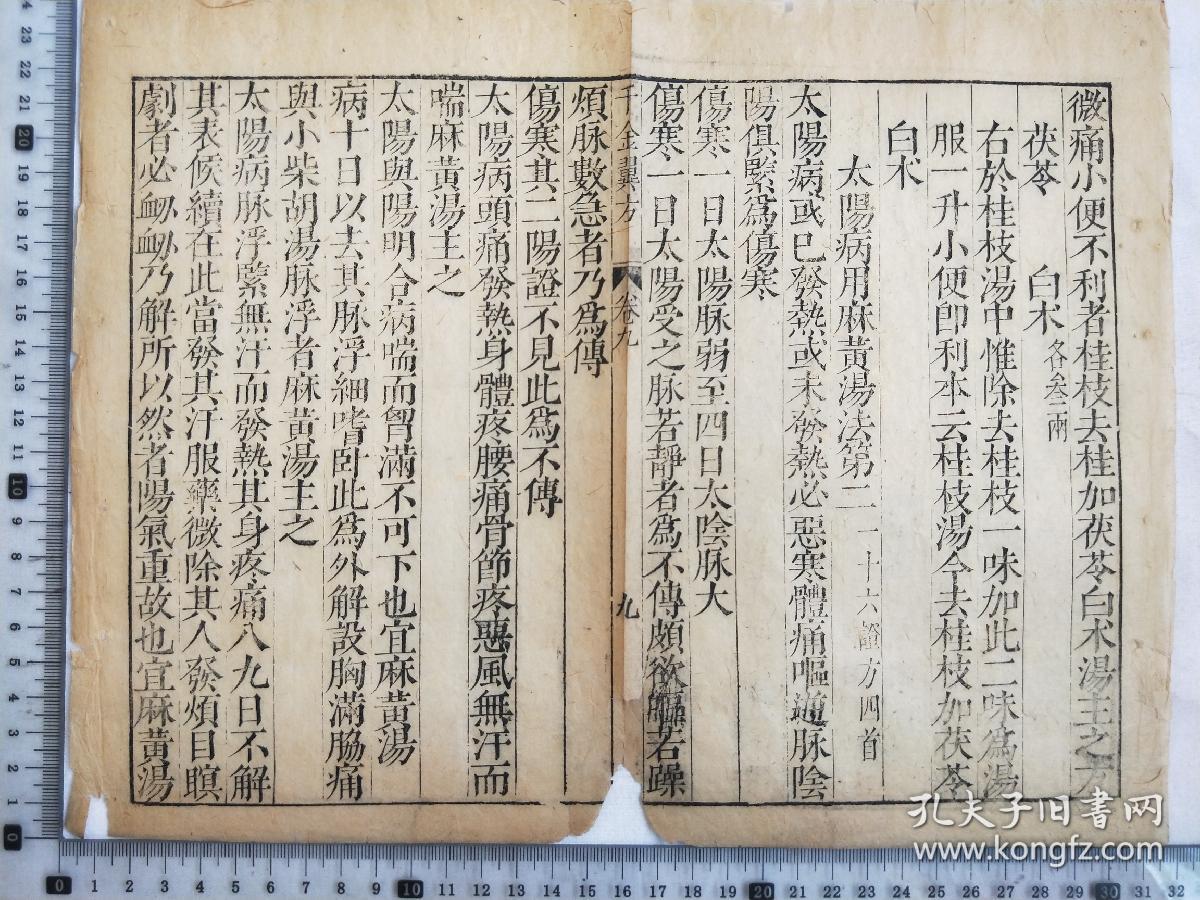 微痛小便不利者桂枝去桂加茯苓白术湯主之方
茯苓 白术各叁兩
右於桂枝湯中惟除去桂枝一味加此二味為湯
服一升小便即利本云桂枝湯今去桂枝加茯苓
白术
太陽病用麻黃湯法第二一十六證方四首
太陽病或已發熱或未發熱必惡寒體痛嘔逆脉陰
陽俱緊為傷寒
傷寒一日太陽脉弱至四日太陰脉大
傷寒一日太陽受之脉若靜者為不傳頗欲嘔若躁
千金翼方 卷九 九
煩脉數急者乃為傳
傷寒其二陽證不見此為不傳
太陽病頭痛發熱身體疼腰痛骨節疼惡風無汗而
喘麻黃湯主之
太陽與陽明合病喘而胷滿不可下也宜麻黃湯
病十日以去其脉浮細嗜卧此為外解設胸滿脇痛
與小柴胡湯脉浮者麻黃湯主之
太陽病脉浮緊無汗而發熱其身疼痛八九日不解
其表候續在此當發其汗服藥微除其人發煩目瞑
劇者必衂衂乃解所以然者陽氣重故也宜麻黃湯
孔夫子旧书网
www.kongfz.com